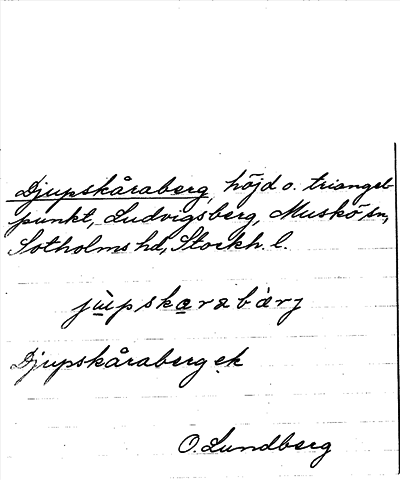 Djupskåraberg, höjd o. triangel-
punkt, Ludvigsberg, Muskö sn,
Sotholms hd, Stockh. l.
jùpskarabàrj
Djupskåraberg ek
O. Lundberg